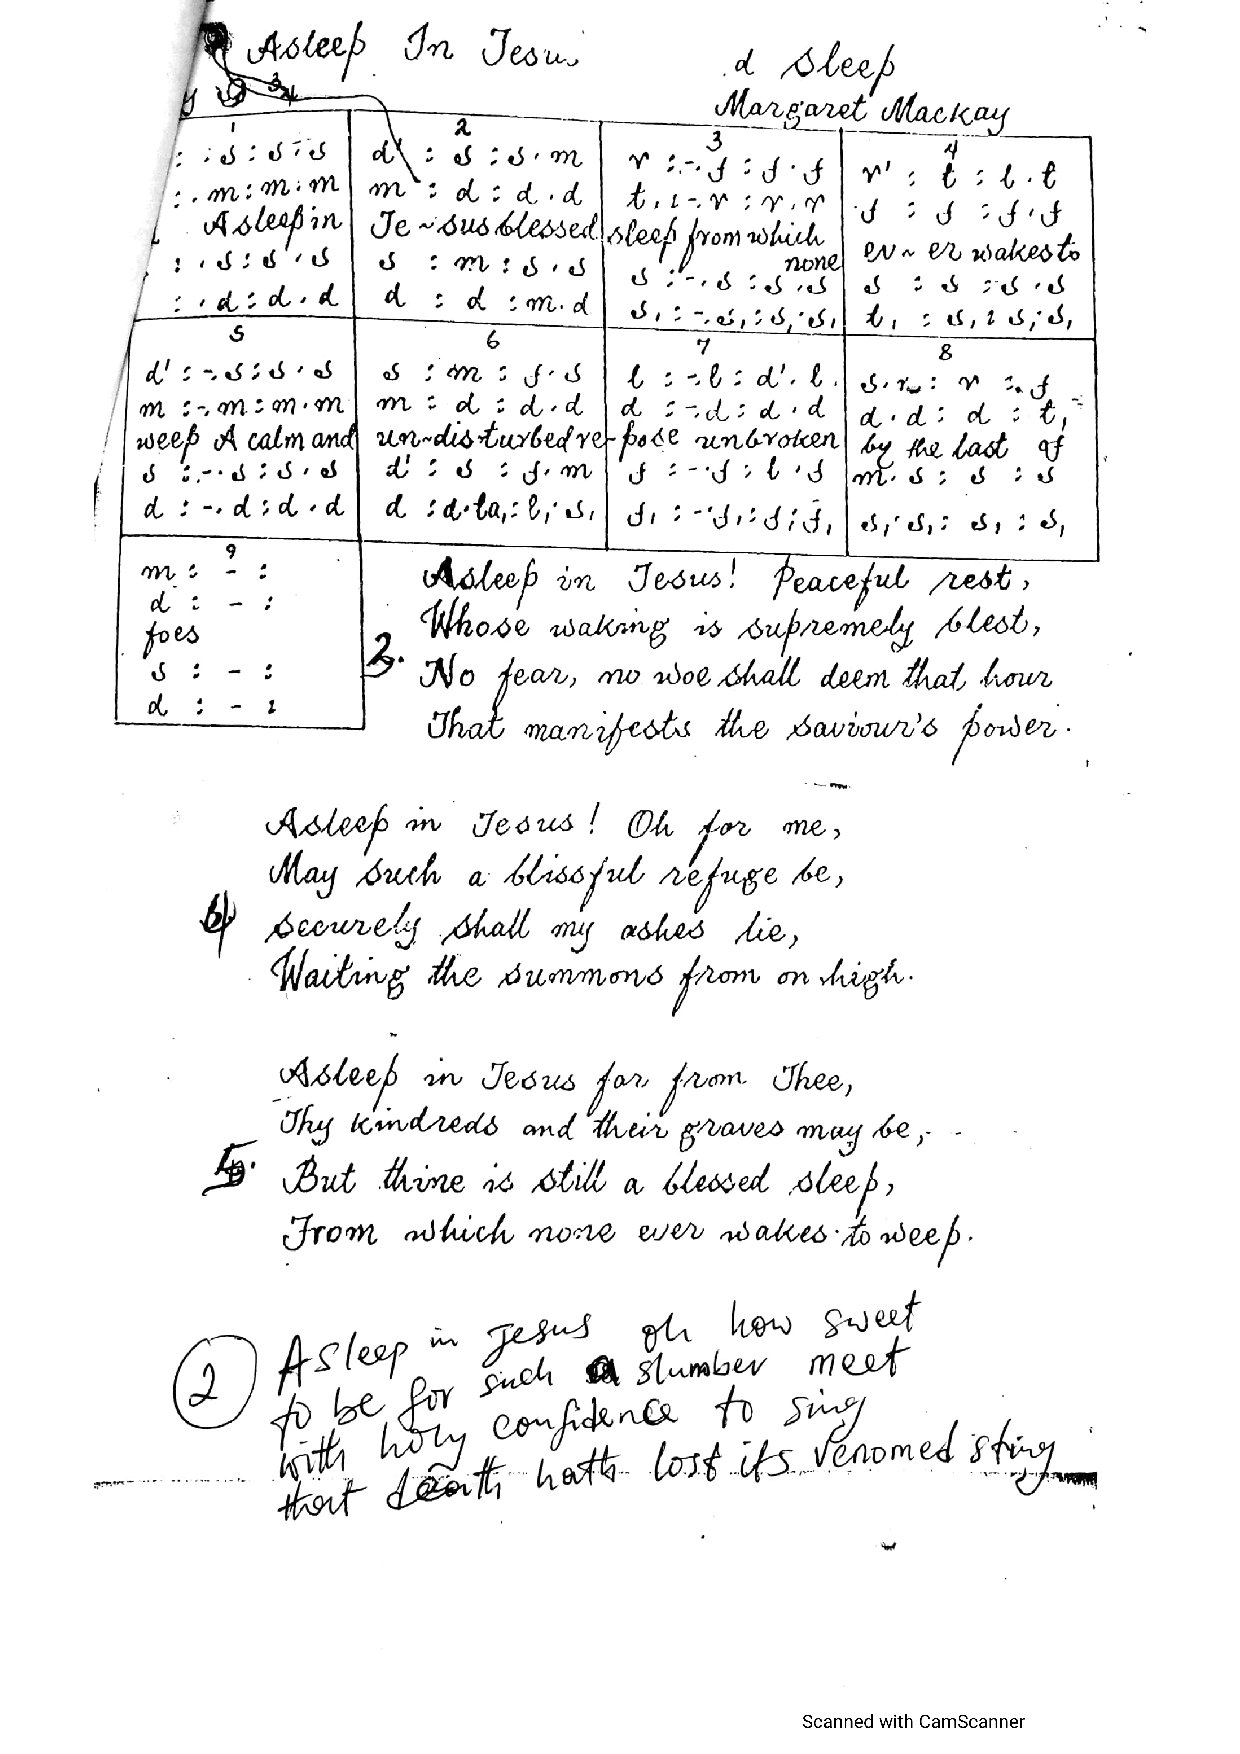 Asleep In Jesu
d sleep
Margaret Mackay
3/4
1
: . s : s . s
: . m : m . m
Asleep in
: . s : s . s
: . d : d . d
2
d' : s : s . m
m : d : d . d
Je ~ sus blessed
s : m : s . s
d : d : m . d
3
r : - . f : f . f
t, : - . r : r . r
sleep from which none
s : - . s : s . s
s, : - . s, : s, . s,
4
r' : t : l . t
f : f : f . f
ev ~ er wakes to
s : s : s . s
t, : s, : s, . s,
5
d' : - . s : s . s
m : - . m : m . m
weep A calm and
s : - . s : s . s
d : - . d : d . d
6
s : m : f . s
m : d : d . d
un-dis-turbed re-
d' : s : f . m
d : d . ta, : l, . s,
7
l : - . l : d' . l
d : - . d : d . d
pose unbroken
f : - . f : l . f
f, : - . f, : f, . f,
8
s . m : r : . f
d . d : d : t,
by the last of
m . s : s : s
s, . s, : s, : s,
9
m : - :
d : - :
foes
s : - :
d : - :
Asleep in Jesus! Peaceful rest,
Whose waking is supremely blest,
3. No fear, no woe shall deem that hour
That manifests the saviour's power.
Asleep in Jesus! Oh for me,
May such a blissful refuge be,
securely shall my ashes lie,
Waiting the summons from on high.
Asleep in Jesus far from Thee,
Thy kindreds and their graves may be,
5. But thine is still a blessed sleep,
From which none ever wakes to weep.
2 Asleep in Jesus oh how sweet
to be for such a slumber meet
with holy confidence to sing
that death hath lost its venomed sting
Scanned with CamScanner